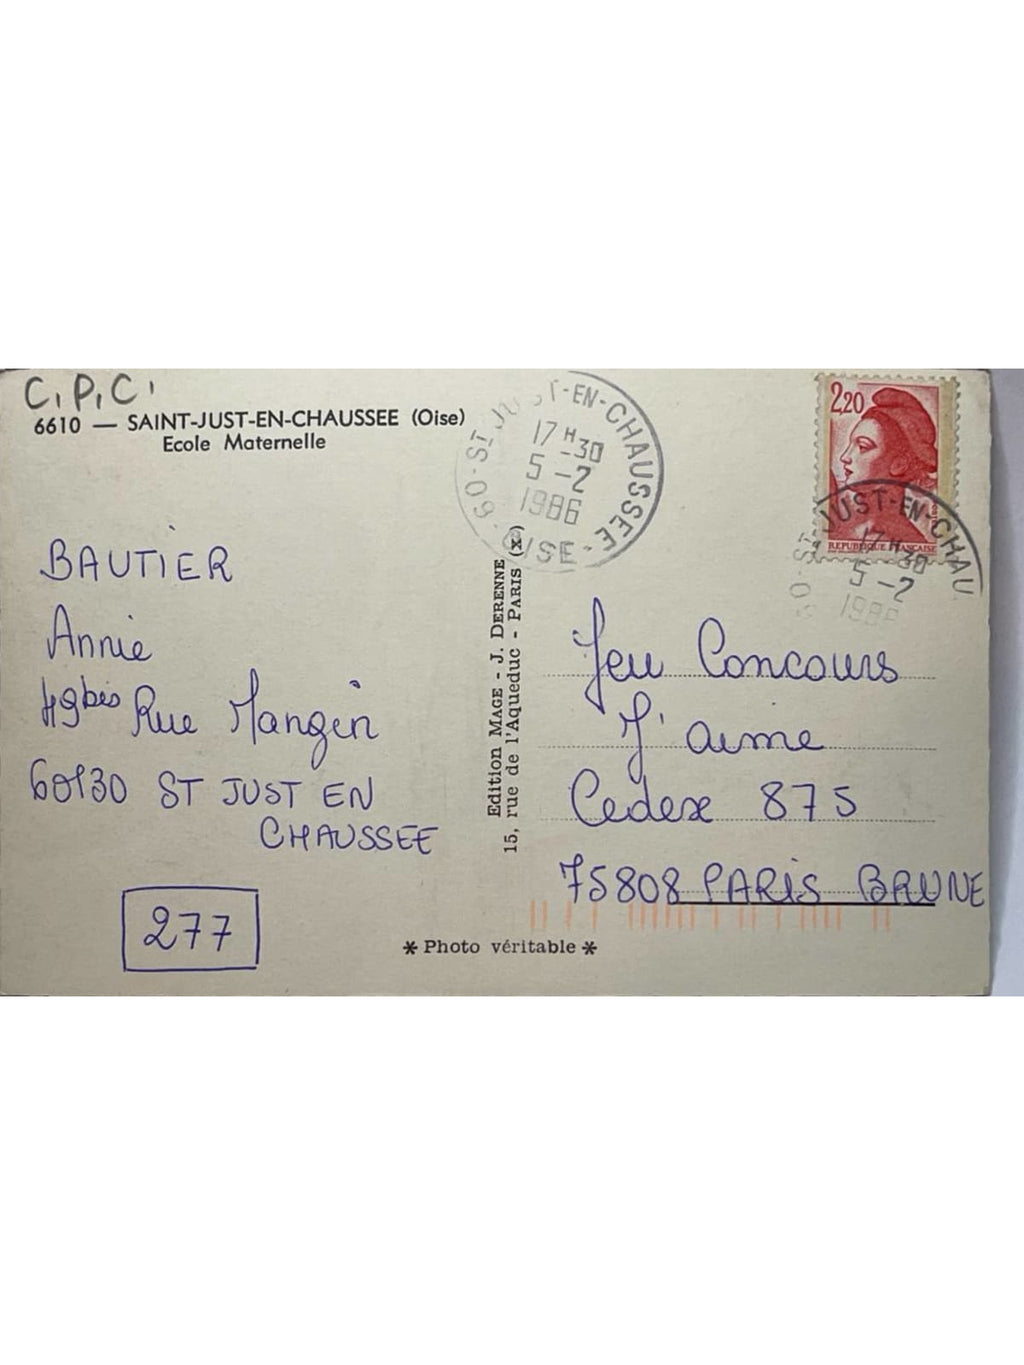 C.P.C.
6610 — SAINT-JUST-EN-CHAUSSEE (Oise)
Ecole Maternelle
60 - ST JUST-EN-CHAUSSEE - OISE -
17 H 30
5 - 2
1986
2,20
REPUBLIQUE FRANCAISE
60 - ST JUST-EN-CHAU
17 H 30
5 - 2
1986
BAUTIER
Annie
49bis Rue Mangin
60130 ST JUST EN
CHAUSSEE
277
Edition MAGE - J. DERENNE
15, rue de l'Aqueduc - PARIS (x)
Jeu Concours
J'aime
Cedex 875
75808 PARIS BRUNE
* Photo véritable *